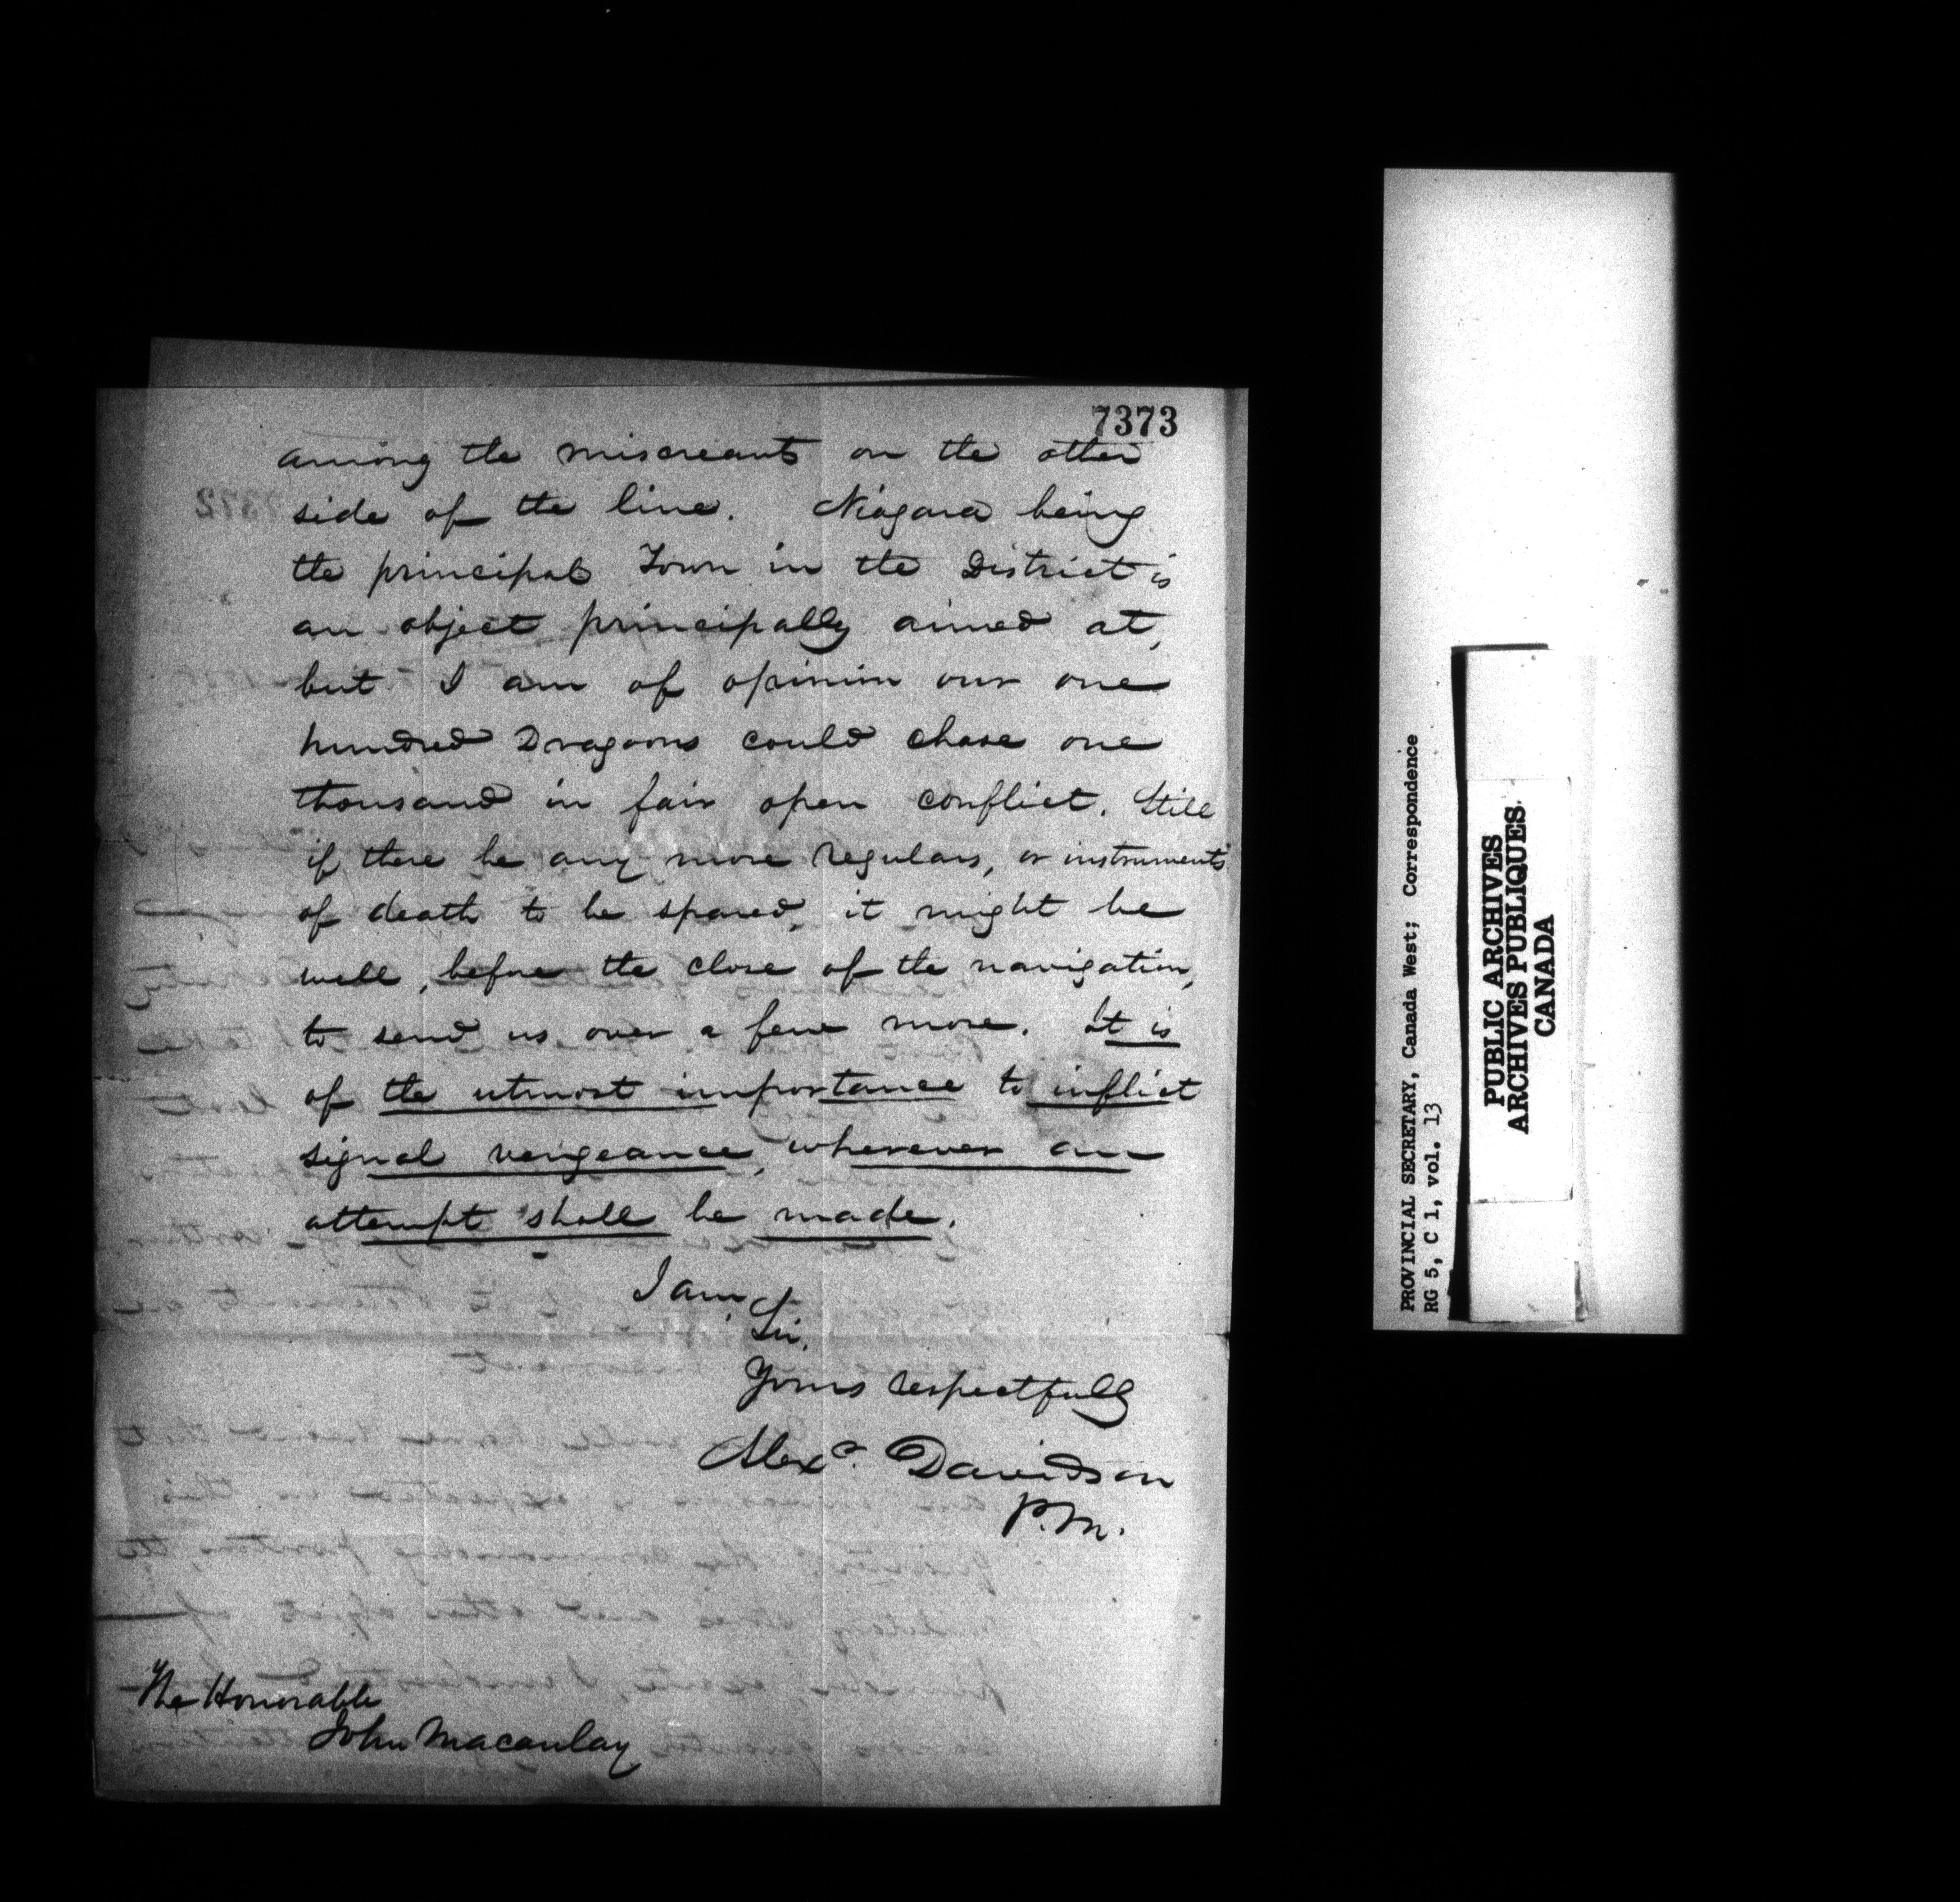 7373
among the miscreants on the other
side of the line. Niagara being
the principal Town in the District is
an object principally aimed at,
but I am of opinion our one
hundred Dragoons could chase one
thousand in fair open conflict. Still
if there be any more regulars, or instruments
of death to be spared, it might be
well, before the close of the navigation,
to send us over a few more. It is
of the utmost importance to inflict
signal vengeance, wherever an
attempt shall be made.
I am,
Sir,
Yours respectfully
Alexr. Davidson
P.M.
The Honorable
John Macaulay
PROVINCIAL SECRETARY, Canada West; Correspondence
RG 5, C 1, vol. 13
PUBLIC ARCHIVES
ARCHIVES PUBLIQUES
CANADA